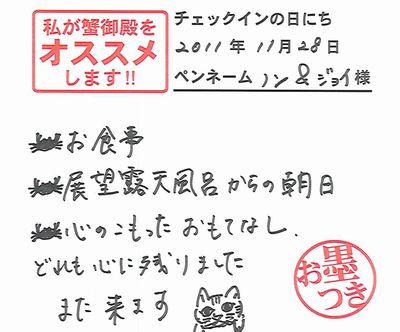 私が蟹御殿を
オススメ
します!!
チェックインの日にち
2011年 11月 28日
ペンネーム ノン&ジョイ様
お食事
展望露天風呂からの朝日
心のこもった おもてなし.
どれも心に残りました
また来ます
お墨つき